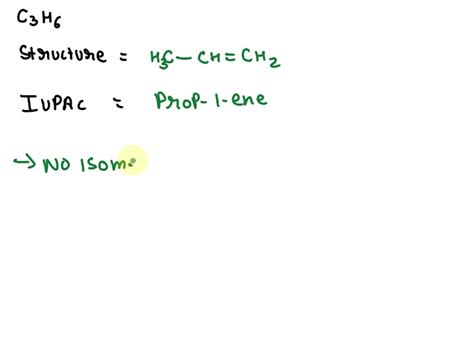 C3H6
Structure = H3C - CH = CH2
IUPAC = Prop-1-ene
→ NO ISOM